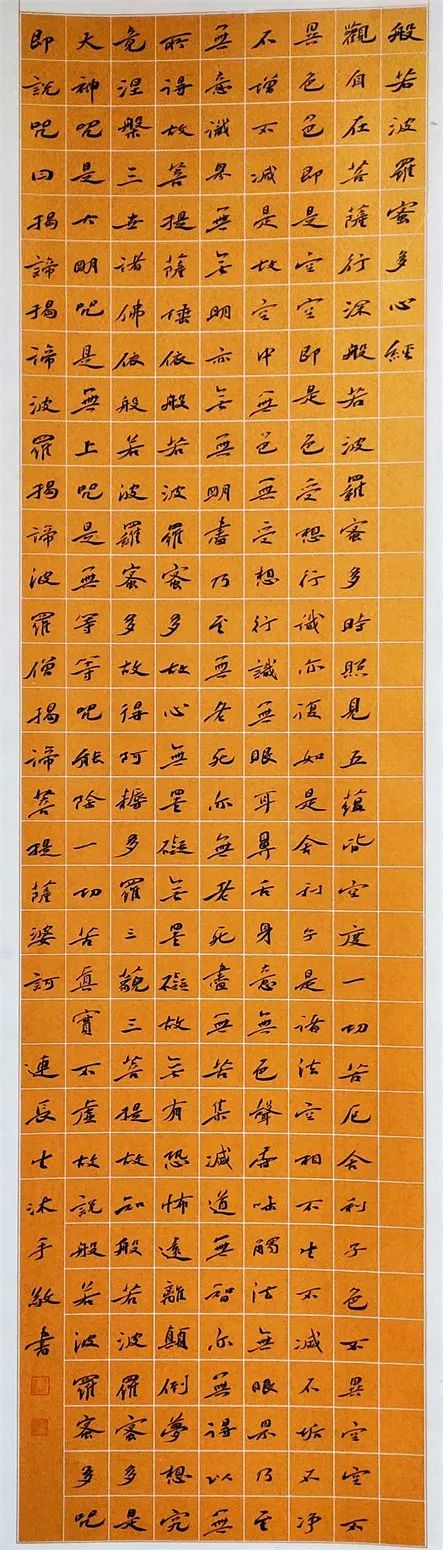 般若波羅蜜多心經
觀自在菩薩行深般若波羅蜜多時照見五蘊皆空度一切苦厄舍利子色不異空空不
異色色即是空空即是色受想行識亦復如是舍利子是諸法空相不生不滅不垢不淨
不增不減是故空中無色無受想行識無眼耳鼻舌身意無色聲香味觸法無眼界乃至
無意識界無無明亦無無明盡乃至無老死亦無老死盡無苦集滅道無智亦無得以無
所得故菩提薩埵依般若波羅蜜多故心無罣礙無罣礙故無有恐怖遠離顛倒夢想究
竟涅槃三世諸佛依般若波羅蜜多故得阿耨多羅三藐三菩提故知般若波羅蜜多是
大神咒是大明咒是無上咒是無等等咒能除一切苦真實不虛故說般若波羅蜜多咒
即說咒曰揭諦揭諦波羅揭諦波羅僧揭諦菩提薩婆訶 連長生沐手敬書